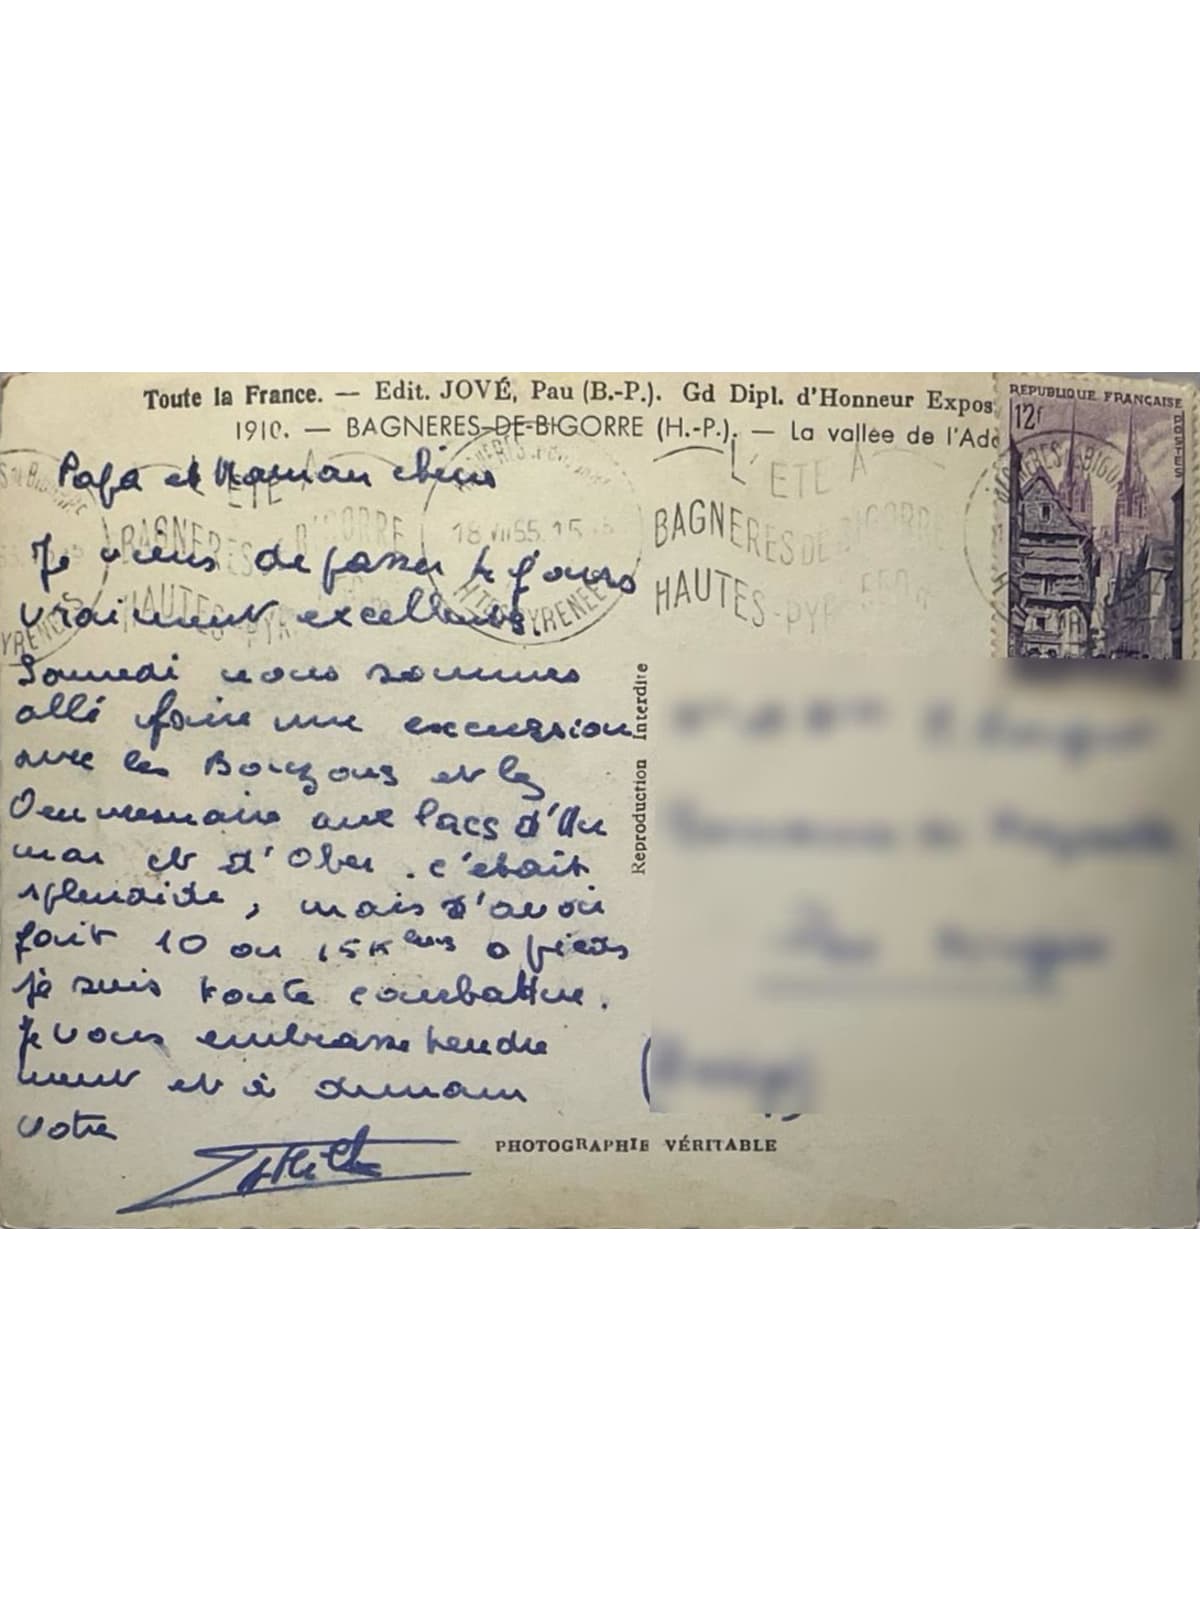 Toute la France. — Edit. JOVÉ, Pau (B.-P.). Gd Dipl. d'Honneur Expos
1910. — BAGNERES-DE-BIGORRE (H.-P.). — La vallée de l'Ado
REPUBLIQUE FRANÇAISE
12f
POSTES
L'ETE A
BAGNERES DE BIGORRE
HAUTES-PYR
550
18 VII 55
Htes PYRENEES
Papa et Maman chéris
Je viens de passer jours
vraiment excellents.
Samedi nous sommes
allé faire une excursion
avec les et les
aux lacs d'Au
mar et d'Ober. c'était
splendide, mais d'avoir
fait 10 ou 15 K a pieds
je suis toute courbattue.
Je vous embrasse tendre
ment et à demain
votre
Reproduction Interdite
PHOTOGRAPHIE VÉRITABLE